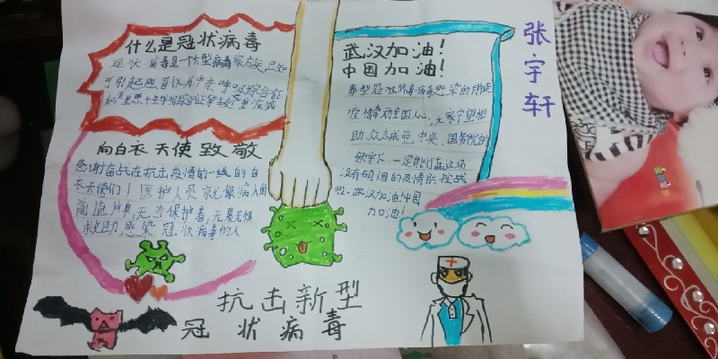 什么是冠状病毒
冠状病毒是一个大型病毒家族,已知
可引起感冒以及中东呼吸综合征
和严重急性呼吸综合征等较严重疾病
向白衣天使致敬
感谢奋战在抗击疫情的一线的白
衣天使们!医护人员就像病人的
救助感染冠状病毒的人
武汉加油!
中国加油!
新型冠状病毒感染的肺炎
疫情牵动全国人心,大家守望相
助、众志成城党中央、国务院的
领导下,一定能打赢这场
没有硝烟的疫情防控战
役。武汉加油中国
加油!
张宇轩
抗击新型
冠状病毒